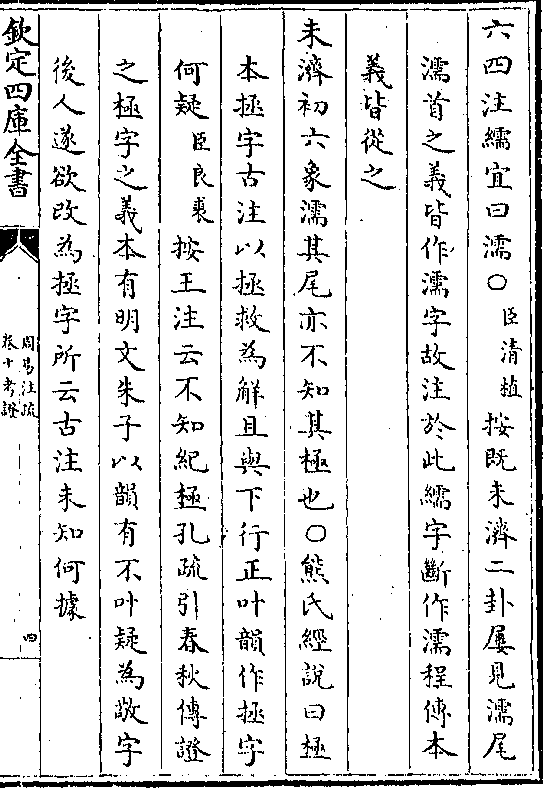 六四注繻宜曰濡○臣清植按既未濟二卦屢見濡尾
濡首之義皆作濡字故注於此繻字斷作濡程傳本
義皆從之
未濟初六象濡其尾亦不知其極也○熊氏經說曰極
本拯字古注以拯救為解且與下行正叶韻作拯字
何疑臣良裘按王注云不知紀極孔疏引春秋傳證
之極字之義本有明文朱子以韻有不叶疑為敬字
後人遂欲改為拯字所云古注未知何據
欽定四庫全書
周易注疏
卷十考證
四